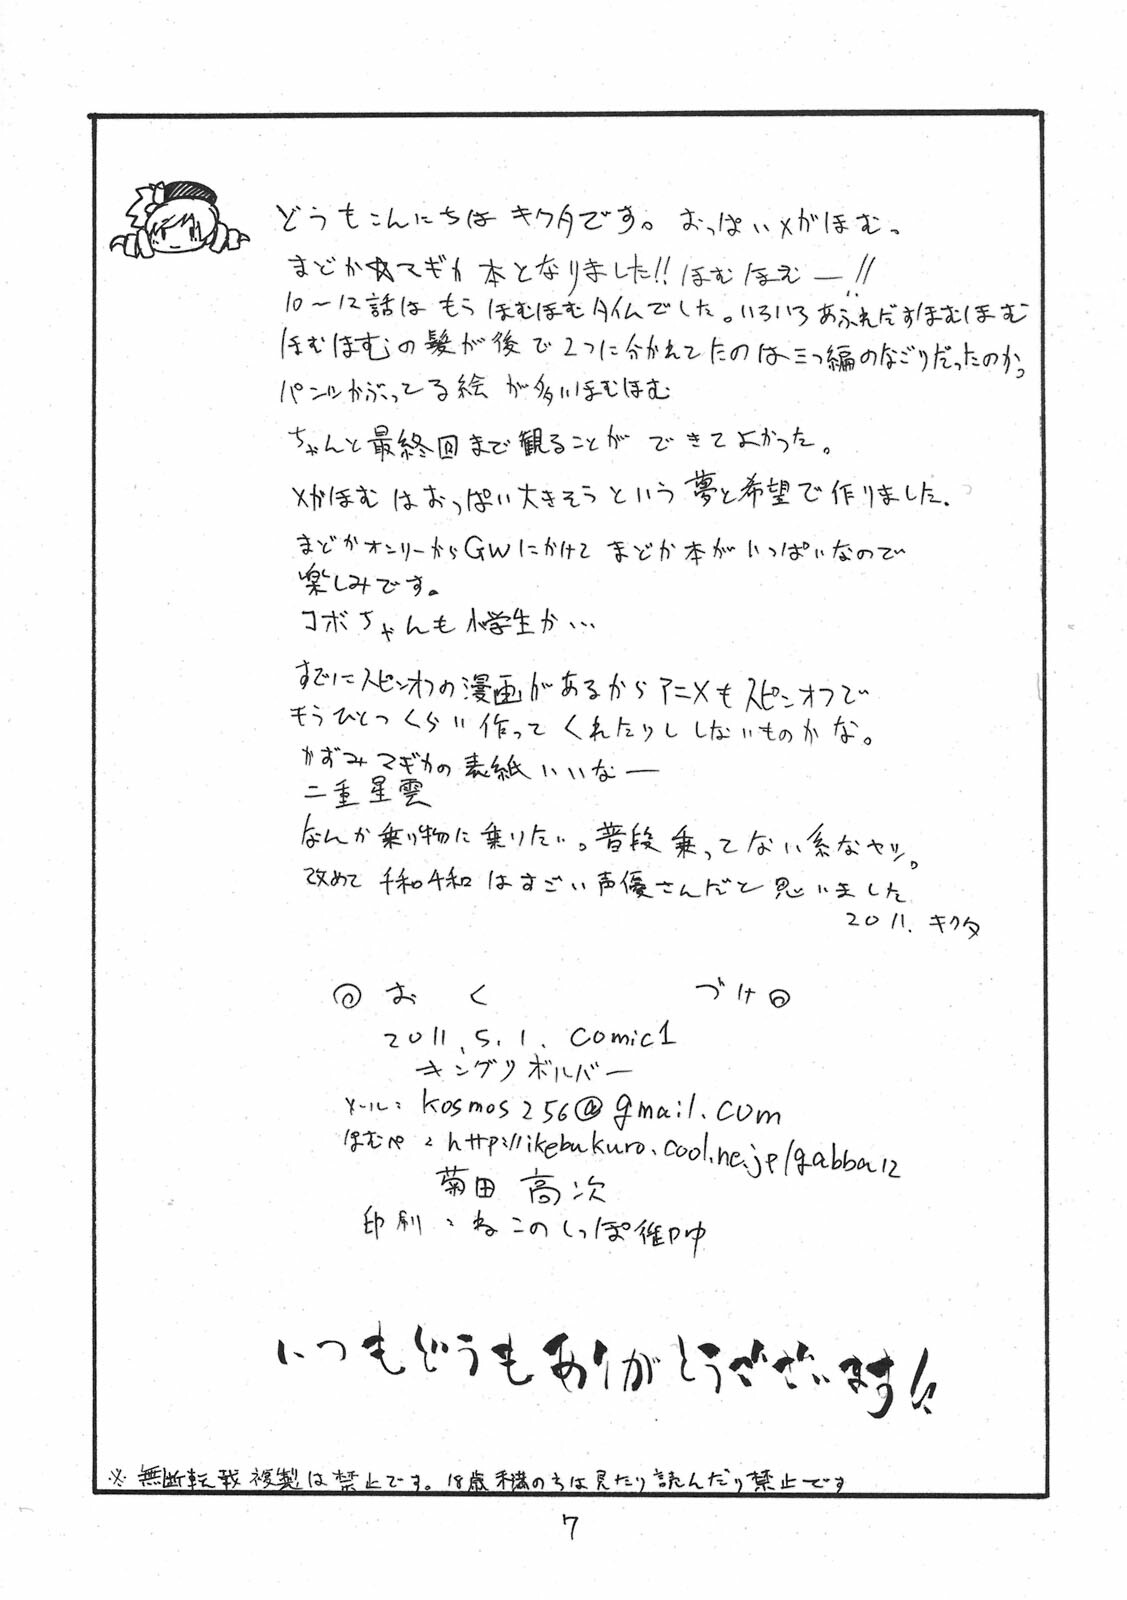 どうもこんにちは キクタです。 おっぱいメがほむっ
まどか☆マギカ 本となりました!! ほむほむー!!
10〜12話は もう ほむほむタイムでした。いろいろあふれだすほむほむ
ほむほむの髪が後で2つに分かれてたのは三つ編のなごりだったのかっ
パンツかぶってる絵 が多いほむほむ
ちゃんと最終回まで観ることが できてよかった。
メがほむ はおっぱい大きそう という 夢と希望で 作りました.
まどかオンリーからGWにかけて まどか本が いっぱいなので
楽しみです。
コボちゃんも 小学生か…
すでにスピンオフの漫画があるから アニメもスピンオフで
もうひとつくらい 作って くれたりし しないものかな。
かずみマギカの表紙いいなー
二重星雲
なんか乗り物に乗りたい。普段 乗ってない系なヤツ。
改めて 千和千和 はすごい声優さんだと 思いました
2011. キクタ
◎ お く づけ ◎
2011.5.1. comic1
キングリボルバー
メール: kosmos256@gmail.com
ほむぺ : http://ikebukuro.cool.ne.jp/gabba12
菊田 高次
印刷 : ねこのしっぽ御中
いつもどうもありがとうございます!!
※ 無断転載複製は禁止です。18歳未満のちは見たり読んだり禁止です
7